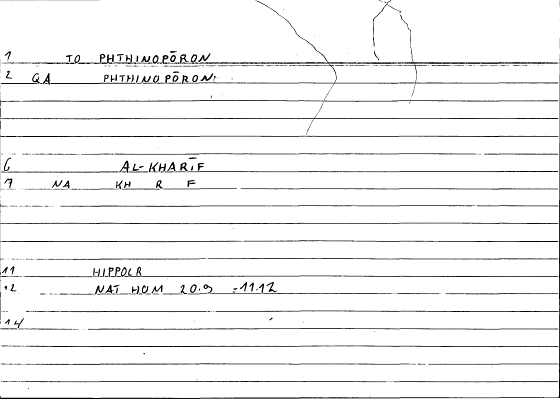 1 TO PHTHINOPŌRON
2 QA PHTHINOPŌRON
6 AL-KHARĪF
7 NA KH R F
11 HIPPOCR
12 NAT HOM 20.9 = 11.12
14